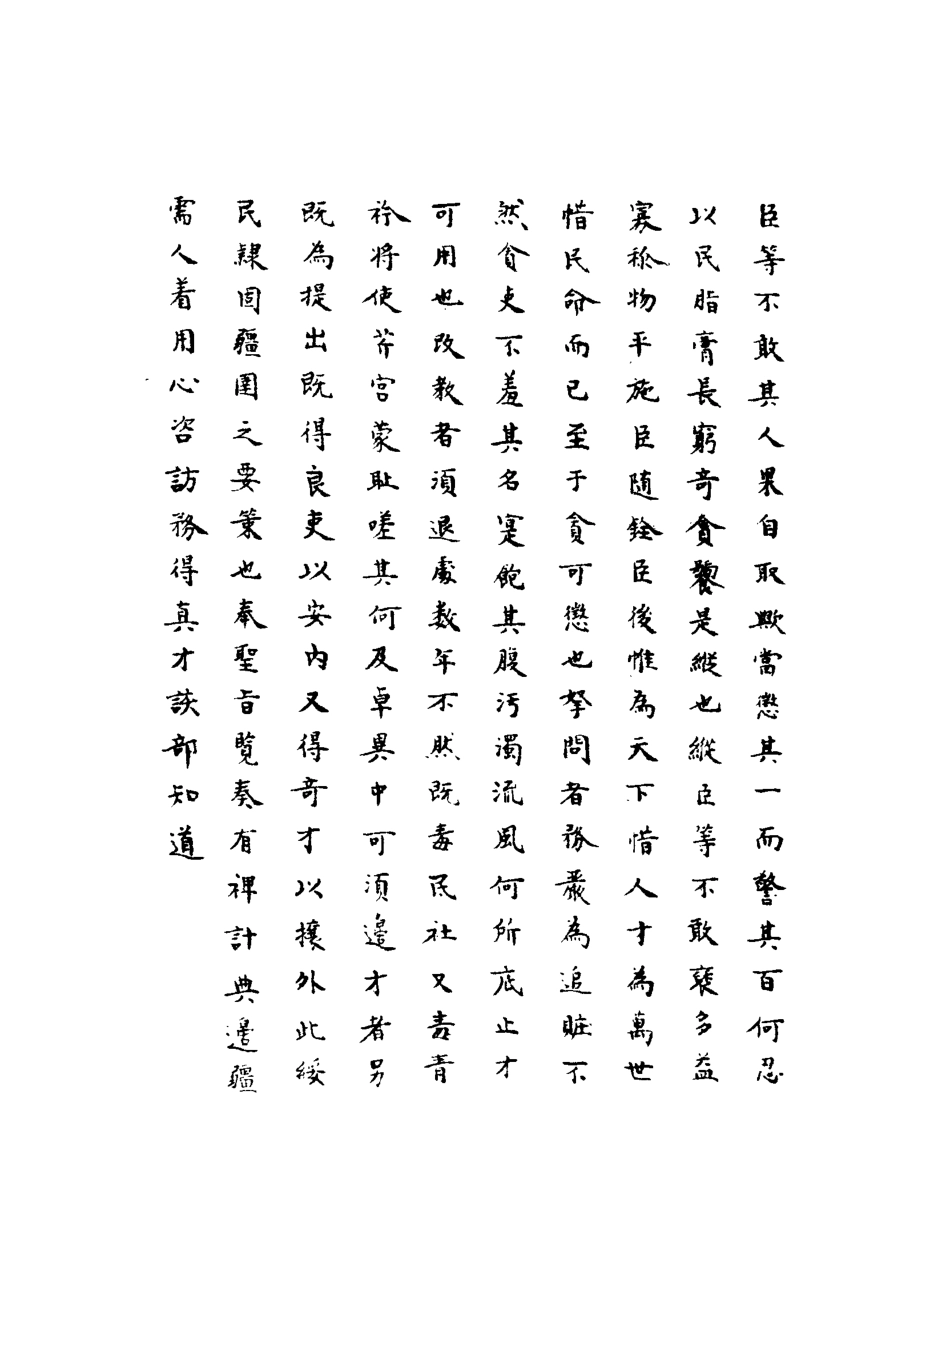 臣等不敢其人果自取歟當懲其一而警其百何忍
以民脂膏長窮奇貪饕是縱也縱臣等不敢裒多益
寡稱物平施臣隨銓臣後惟為天下惜人才為萬世
惜民命而已至于貪可懲也拏問者務嚴為追贓不
然貪吏不羞其名寔飽其腹污濁流風何所底止才
可用也改教者須退處數年不然既毒民社又害青
衿將使芹宮蒙耻嗟其何及卓異中可須邊才者另
既為提出既得良吏以安內又得奇才以攘外此綏
民隸固疆圉之要策也奉聖旨覽奏有裨計典邊疆
需人着用心咨訪務得真才該部知道